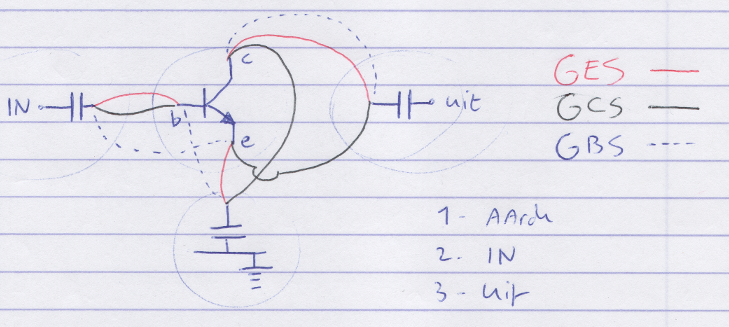 c
GES
IN
b
uit
GCS
e
GBS
1- AArde
2. IN
3- uit